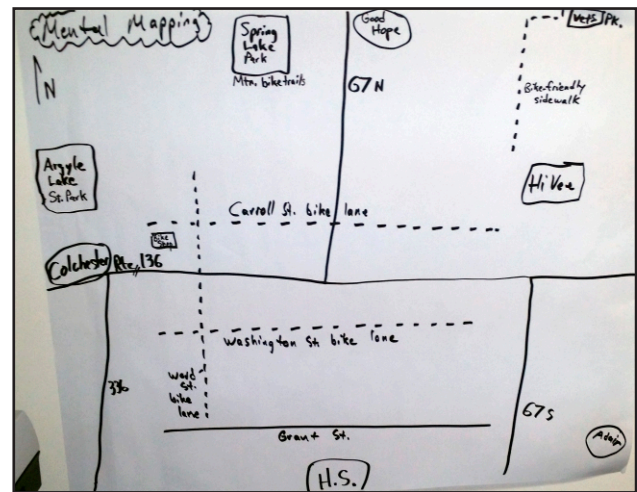 Mental Mapping
N
Spring
Lake
Park
Mtn. bike trails
Good
Hope
67 N
Vets Pk.
Bike-friendly
sidewalk
Argyle
Lake
St. Park
HiVee
Carroll St. bike lane
Bike
Shop
Colchester Rte. 136
Washington St. bike lane
Ward
St.
bike
lane
336
67 S
Grant St.
Adair
H.S.